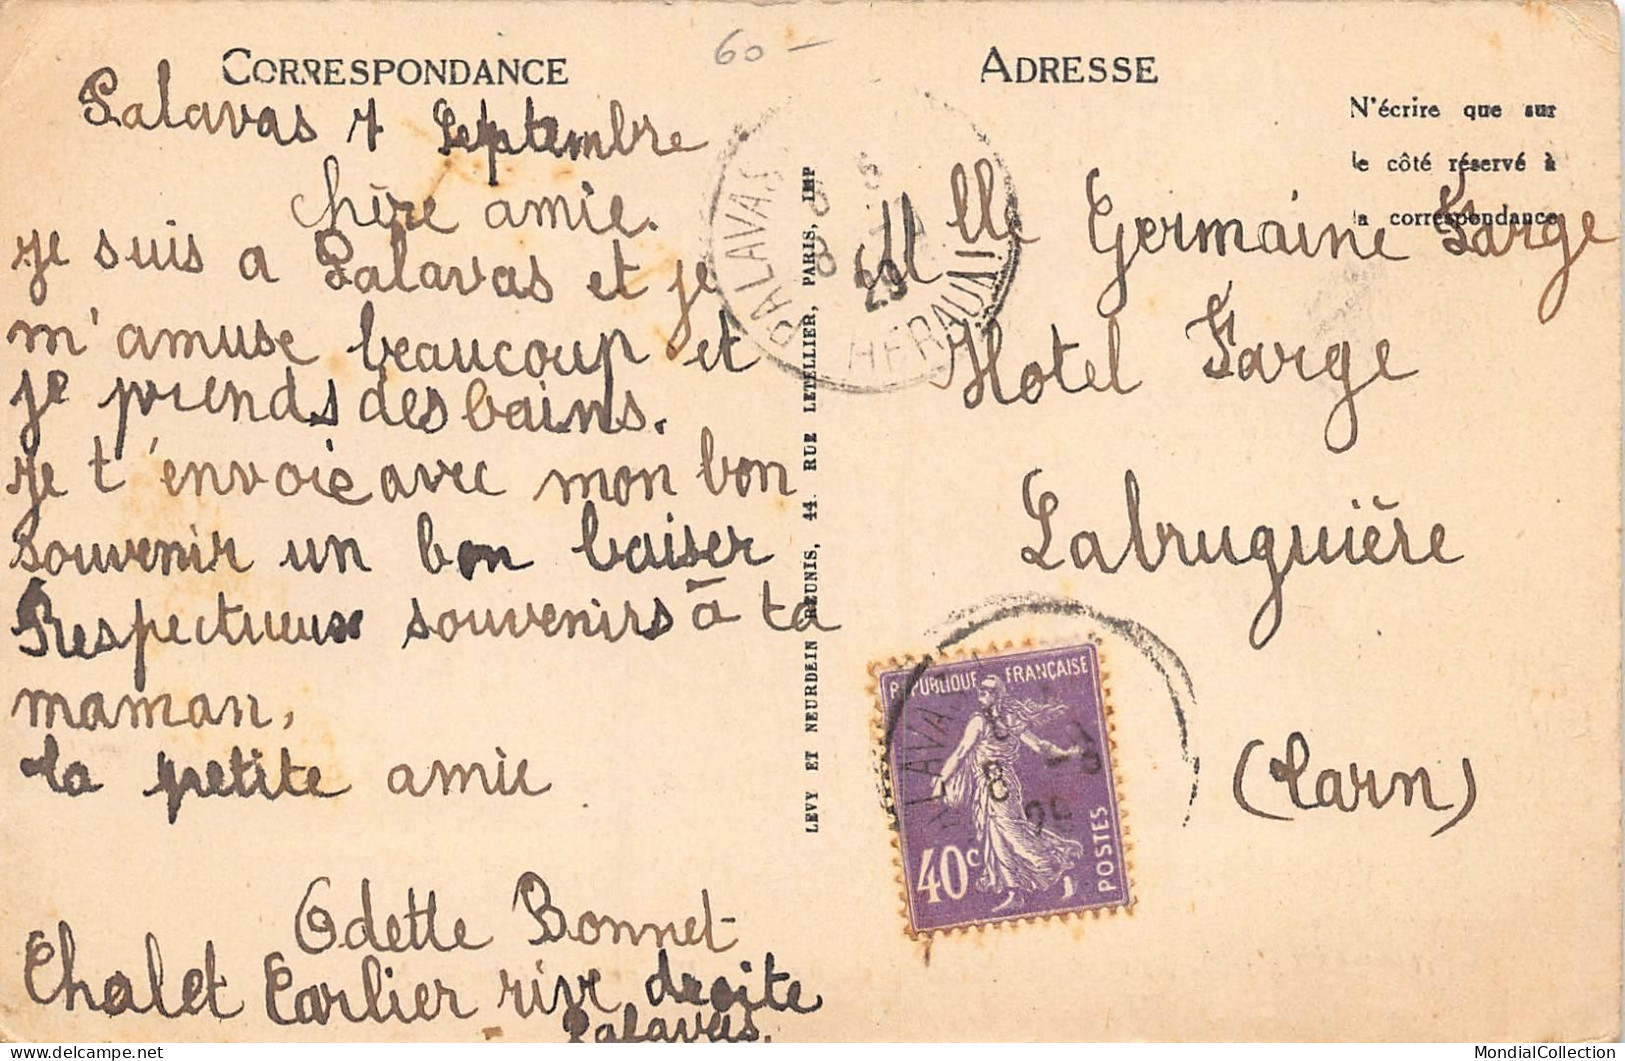 60 -
CORRESPONDANCE
Palavas 7 Septembre
Chère amie.
je suis a Palavas et je
m'amuse beaucoup et
je prends des bains.
je t'envoie avec mon bon
souvenir un bon baiser
Respectueux souvenirs à ta
maman,
ta petite amie
Odette Bonnet
Chalet Carlier rive droite
Palavas.
LEVY ET NEURDEIN RÉUNIS, 44. RUE LETELLIER, PARIS, IMP
ADRESSE
N'écrire que sur
le côté réservé à
la correspondance
Mlle Germaine Farge
Hotel Farge
Labruguière
(Tarn)
PALAVAS
HERAULT
29
REPUBLIQUE FRANÇAISE
40c
POSTES
PALAVAS
8
MondialCollection